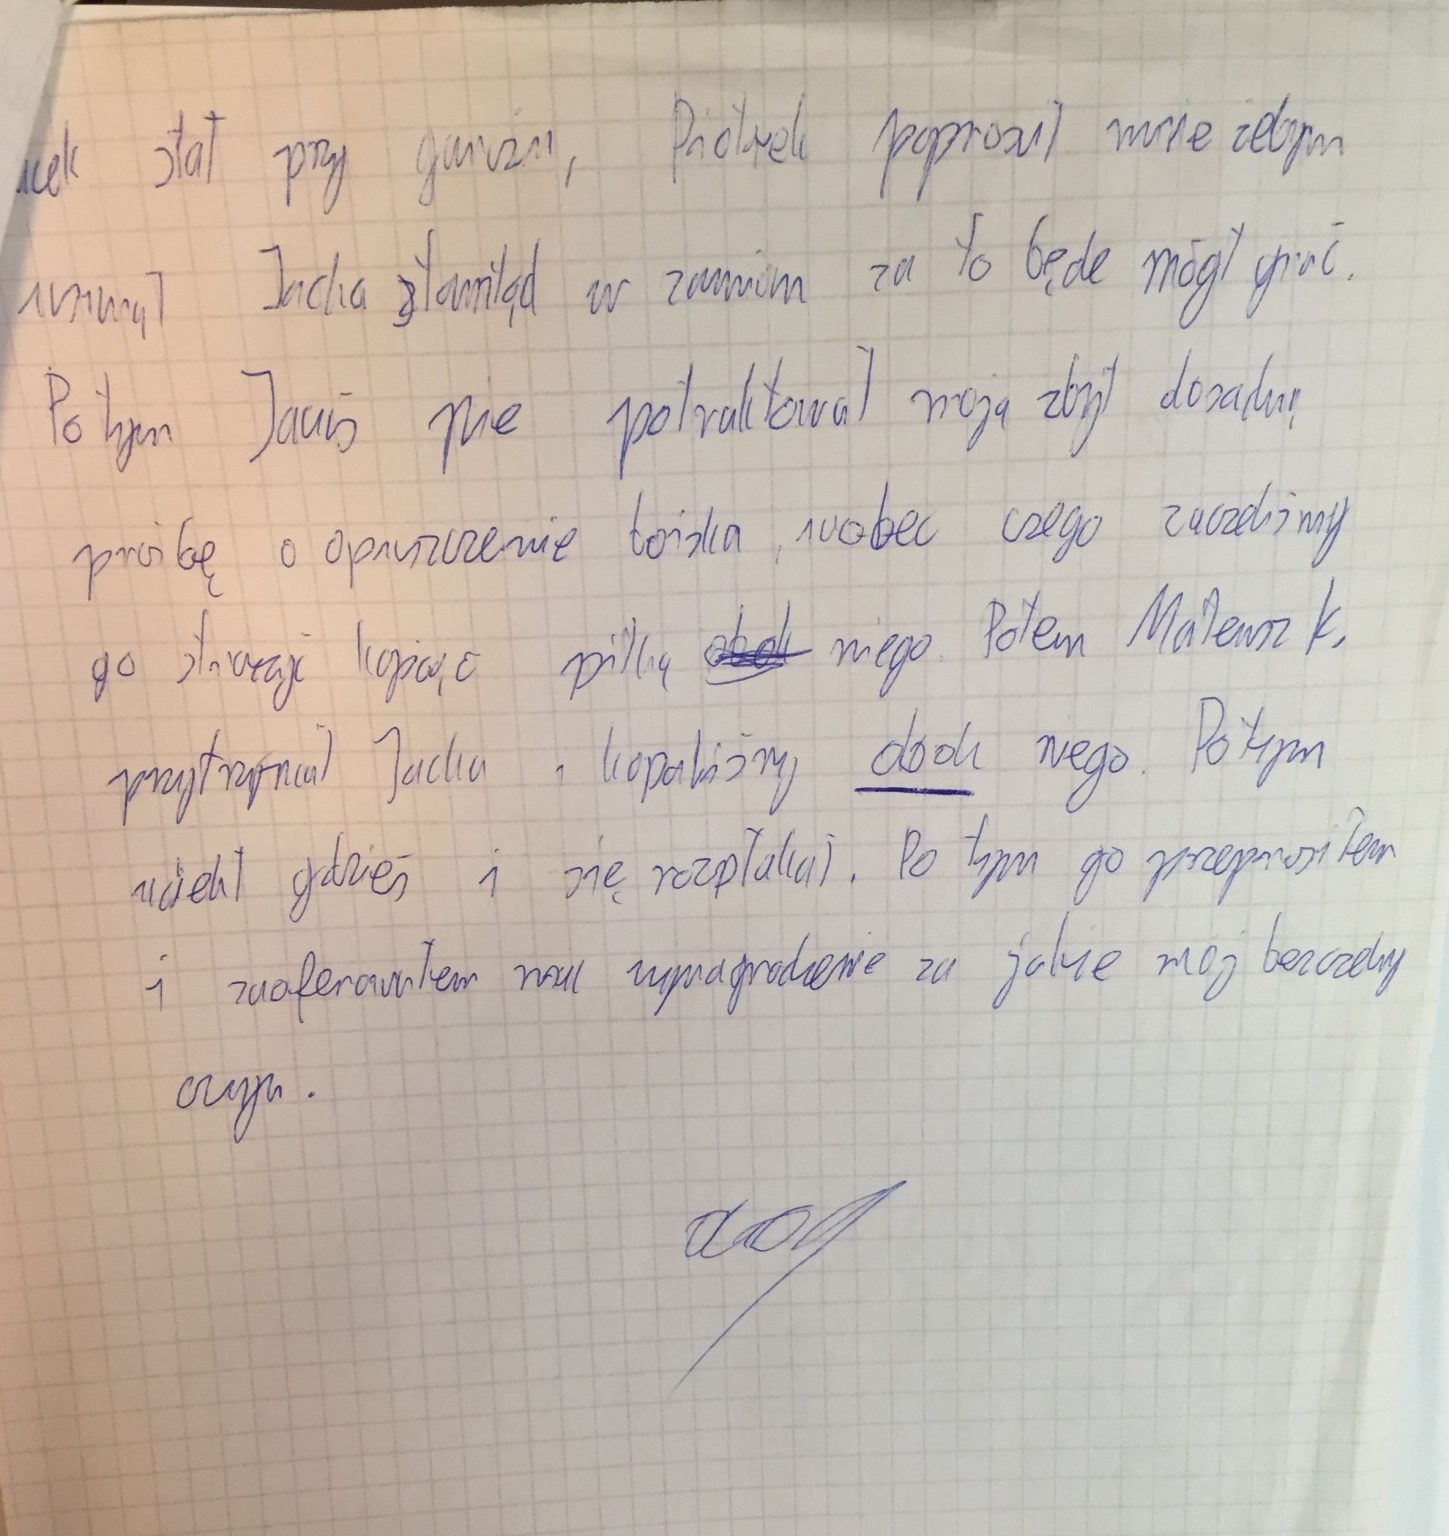 acek stał przy Piotrek poprosił mnie żebym
usunął Jacka stamtąd w zamian za to będe mógł grać.
Po tym Jacuś nie potraktował moją zbyt dosadną
prośbę o opuszczenie boiska, wobec czego zaczeliśmy
go straszyć kopiąc piłką niego. Potem Mateusz K.
przytrzymał Jacka i kopaliśmy obok niego. Po tym
uciekł gdzieś i się rozpłakał. Po tym go przeprosiłem
i zaoferowałem mu wynagrodzenie za jakie mój bezczelny
czyn.